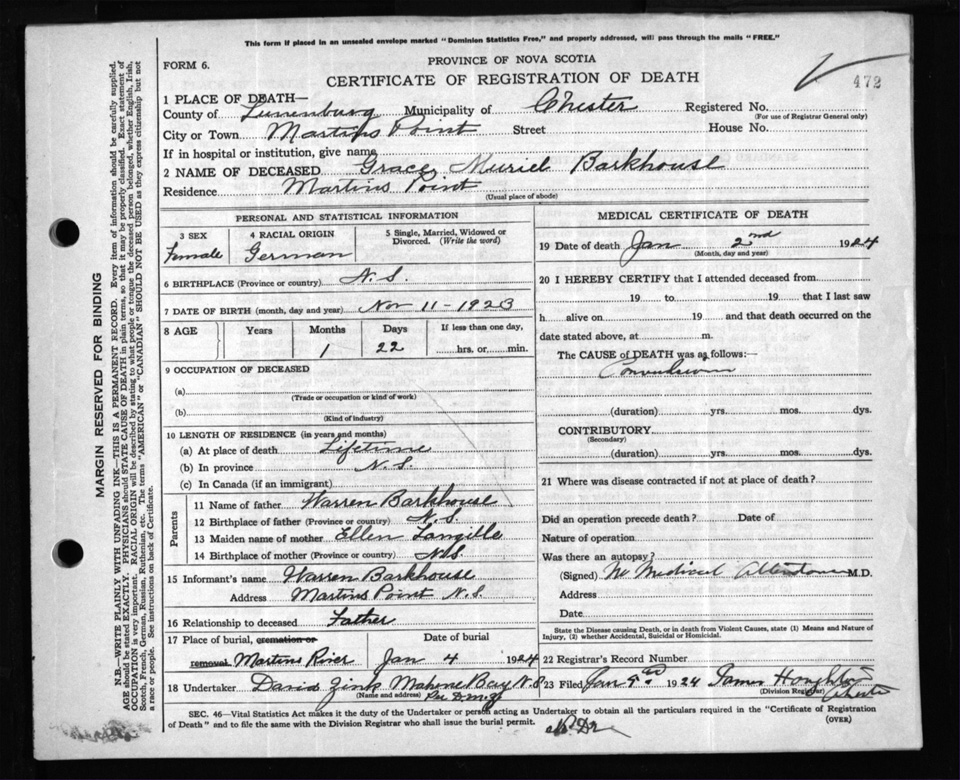 This form if placed in an unsealed envelope marked "Dominion Statistics Free," and properly addressed, will pass through the mails "FREE."
FORM 6.
PROVINCE OF NOVA SCOTIA
CERTIFICATE OF REGISTRATION OF DEATH
472
1 PLACE OF DEATH—
County of Lunenburg Municipality of Chester Registered No.
(For use of Registrar General only)
City or Town Martins Point Street House No.
If in hospital or institution, give name
2 NAME OF DECEASED Grace Muriel Barkhouse
Residence Martins Point
(Usual place of abode)
PERSONAL AND STATISTICAL INFORMATION
3 SEX 4 RACIAL ORIGIN 5 Single, Married, Widowed or Divorced. (Write the word)
Female German
6 BIRTHPLACE (Province or country) N.S.
7 DATE OF BIRTH (month, day and year) Nov 11-1923
8 AGE Years Months Days If less than one day,
1 22 hrs. or min.
9 OCCUPATION OF DECEASED
(a)
(Trade or occupation or kind of work)
(b)
(Kind of industry)
10 LENGTH OF RESIDENCE (in years and months)
(a) At place of death Lifetime
(b) In province N.S.
(c) In Canada (if an immigrant)
Parents
11 Name of father Warren Barkhouse
12 Birthplace of father (Province or country) N.S.
13 Maiden name of mother Ellen Langille
14 Birthplace of mother (Province or country) N.S.
15 Informant's name Warren Barkhouse
Address Martins Point N.S.
16 Relationship to deceased Father
17 Place of burial, cremation or removal Date of burial
Martins River Jan 4 1924
18 Undertaker David Zink Mahone Bay N.S
(Name and address)
MEDICAL CERTIFICATE OF DEATH
19 Date of death Jan 2nd 1924
(Month, day and year)
20 I HEREBY CERTIFY that I attended deceased from
19 to 19 that I last saw
h alive on 19 and that death occurred on the
date stated above, at m.
The CAUSE of DEATH was as follows:—
Convulsion
(duration) yrs. mos. dys.
CONTRIBUTORY
(Secondary)
(duration) yrs. mos. dys.
21 Where was disease contracted if not at place of death?
Did an operation precede death? Date of
Nature of operation
Was there an autopsy?
(Signed) No Medical Attendance M.D.
Address
Date
State the Disease causing Death, or in death from Violent Causes, state (1) Means and Nature of
Injury, (2) whether Accidental, Suicidal or Homicidal.
22 Registrar's Record Number
23 Filed Jan 1924 James Houghton
(Division Registrar) Chester
SEC. 46—Vital Statistics Act makes it the duty of the Undertaker or person acting as Undertaker to obtain all the particulars required in the "Certificate of Registration
of Death" and to file the same with the Division Registrar who shall issue the burial permit.
(OVER)
MARGIN RESERVED FOR BINDING
N.B.—WRITE PLAINLY WITH UNFADING INK—THIS IS A PERMANENT RECORD. Every item of information should be carefully supplied.
AGE should be stated EXACTLY. PHYSICIANS should STATE CAUSE OF DEATH in plain terms, so that it may be properly classified. Exact statement of
OCCUPATION is very important. RACIAL ORIGIN will be described by stating to what people or tongue the deceased person belonged, whether English, Irish,
Scotch, French, German, Russian, Ruthenian, etc. The terms "AMERICAN" or "CANADIAN" SHOULD NOT BE USED as they express citizenship but not
a race or people. See instructions on back of Certificate.